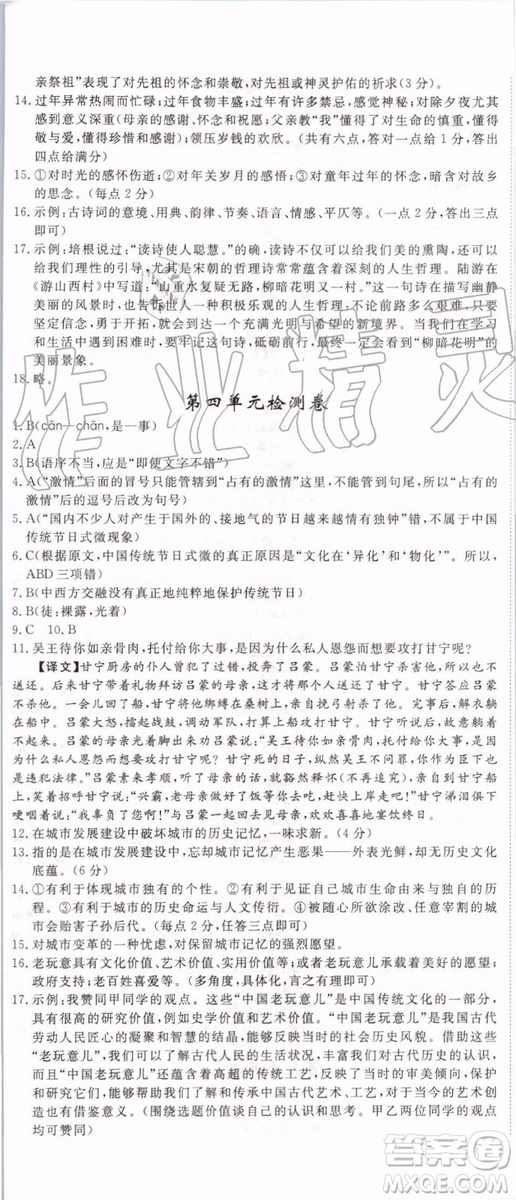 亲祭祖”表现了对先祖的怀念和崇敬,对先祖或神灵护佑的祈求(3分)。
14. 过年异常热闹而忙碌;过年食物丰盛;过年有很多禁忌,感觉神秘;对除夕夜尤其
感到意义深重(母亲的感谢、怀念和祝愿;父亲教“我”作为人对生命的慎重,懂得
敬与爱,懂得珍惜和感谢);领压岁钱的欢欣。(共有六点,答对一点给1分,答出
四点给满分)
15. ①对时光的感怀伤逝;②对年关岁月的感悟;③对童年过年的怀念,暗含对故乡
的思念。(每点2分)
16. 示例:古诗词的意境、用典、韵律、节奏、语言,情感、平仄等。(一点2分,答出三点
即可)
17. 示例:培根说过:“读诗使人聪慧。”读诗不仅可以给我们美的熏陶,还可以给我
们以理性的引导,尤其是宋朝的哲理诗常常蕴含着深刻的人生哲理。陆游在
《游山西村》中写道:“山重水复疑无路,柳暗花明又一村。”这句诗在描写幽静
美丽的风景时,也告诉世人一种积极乐观的人生哲理:不论前路多么艰难,只要
坚定信念,勇于开拓,就会出现充满光明与希望的新境界。我们在学习
和生活中遇到困难时,读读这些诗句,砥砺前行,最终会看到“柳暗花明”的
美丽景象。
18. 略。
第四单元检测卷
1. B(cān—chān,是—事)
2. A
3. B(语序不当,应是“即使文字不错”)
4. A(“激情”后面的冒号只能管辖到“占有的激情”这里,不能管到句尾,所以“占有的
激情”后的逗号应改为句号)
5. A(“国内不少人对产生于国外的、接地气的节日越来越有独钟”有误,不属于中国
传统节日式微的表现)
6. C(根据原文,中国传统节日式微的真正原因是“文化在‘异化’和‘物化’”。所以,
ABD三项错)
7. B(中西方交融没有真正地纯粹地保护传统节日)
8. B(徒:裸露,光着)
9. C 10. B
11. 吴王待你如亲骨肉,托付给你大事,是因为什么私人恩怨而攻打甘宁呢?
【译文】甘宁厨房的仆人曾经有了过错,逃跑投奔了吕蒙。吕蒙恐怕甘宁伤害他,
所以没有立即送还。后来甘宁带着礼物拜访吕蒙的母亲,甘宁答应吕蒙
不杀他。一会儿,回到船上,捆绑在桑树上,亲自挽弓射杀了他。完事后,解衣躺
在船中。吕蒙大怒,击鼓聚集士兵,想要上船攻打甘宁。甘宁听说后故意躺着
不起来。吕蒙的母亲光着脚跑出来劝吕蒙说:“吴王待你如亲骨肉,托付给你大事,是因
为什么私人恩怨而攻打甘宁呢?甘宁死的日子,纵然吴王不问,你作为臣下也
是违犯法律。”吕蒙素来孝顺,听了母亲的话,就豁然释怀了,亲自到甘宁的船上,
笑着招呼他说:“兴霸,老母亲请你吃饭,赶快上来!”甘宁涕泪俱下哽咽
地说:“我辜负了您。”便和吕蒙一起回来见吕母,欢欢喜喜地宴饮了一整天。
12. 在城市发展建设中破坏城市的历史记忆,一味求新。(4分)
13. 指的是在城市发展建设中,忘却城市记忆产生恶果——外表光鲜,却无历史文化
底蕴。(6分)
14. ①有利于体现城市独有的个性。②有利于让人们记住自己城市生命由来与成长
过程。③有利于城市的历史命脉与人文传衍。④城市记忆如果消除、涂改,整个城
市会贻害子孙后代。(每点2分,答出三点即可)
15. 对城市变革的一种忧虑,对保留城市记忆的强烈愿望。
16. 老玩意具有文化价值、艺术价值、实用价值;老玩意儿代表着传承者们美好的愿望;
政府支持;老百姓喜爱等。(多角度,具体,只要言之成理即可)
17. 示例:我赞同甲同学的观点。这些“中国老玩意儿”是中国传统文化的一部分,
具有很高的研究价值、艺术价值和实用价值。这些“中国老玩意儿”是我国古代
劳动人民匠心的凝聚和智慧的结晶,有着深刻的社会历史风貌。借助这些
“中国老玩意儿”,丰富了我们对古代人民的历史文化的认识,而且这些“中
国老玩意儿”还蕴含着高超的传统工艺,反映了当时的审美倾向,保护
和研究它们,能够帮助我们了解中国古代艺术、工艺,对于当今的艺术创造
也有借鉴意义。(围绕选题价值谈自己的认识即可。甲乙两位同学的观点
均可赞同)
作业精灵
答案圈
MXQE.COM